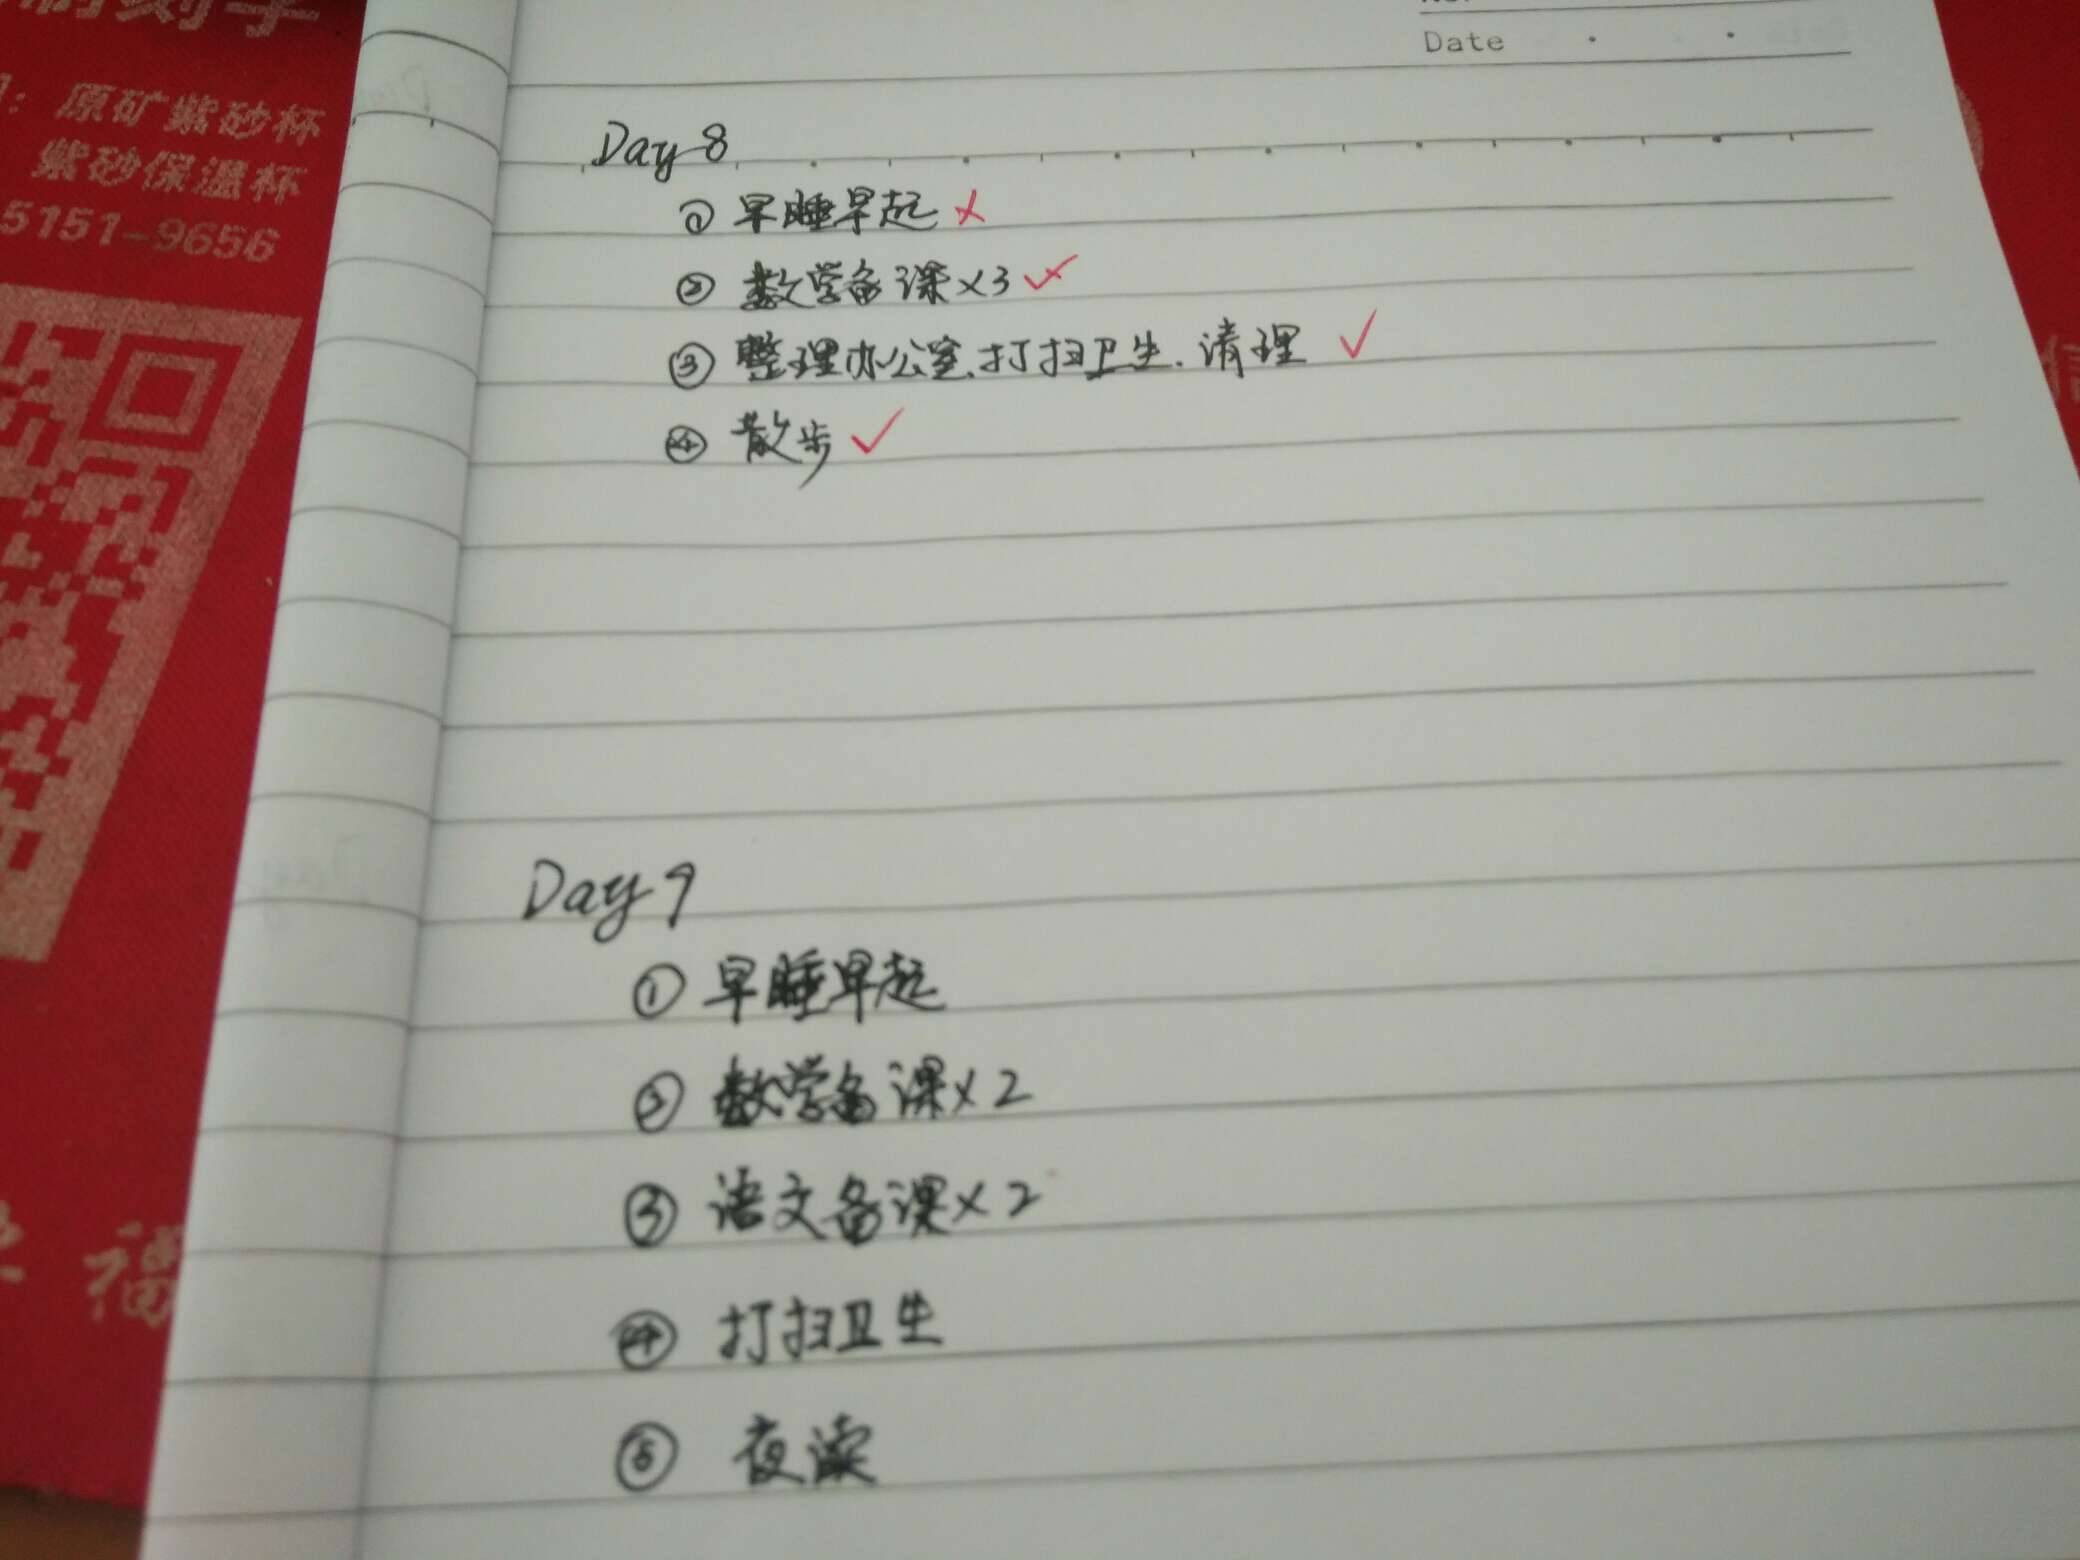 原矿紫砂杯
紫砂保温杯
5151-9656
福
Date
Day 8
① 早睡早起 ×
② 数学备课×3
③ 整理办公室、打扫卫生、清理 ✓
④ 散步 ✓
Day 9
① 早睡早起
② 数学备课×2
③ 语文备课×2
④ 打扫卫生
⑤ 夜读